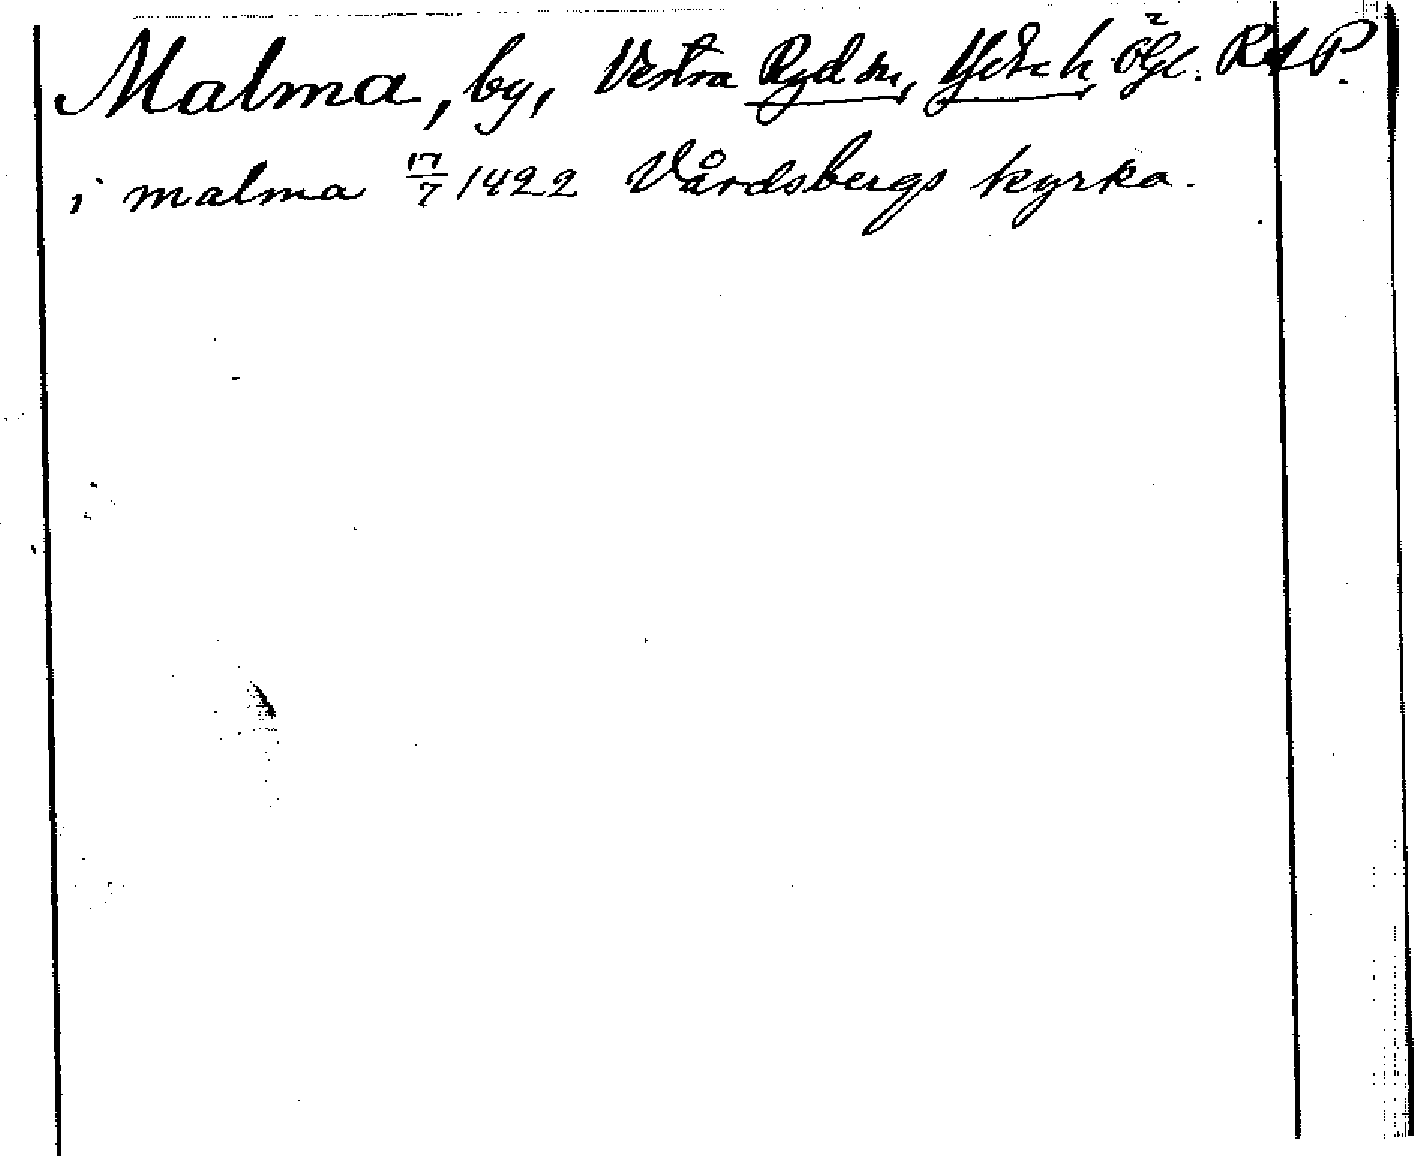 Malma, by, Vestra Ryd sn, Ydre h Ögl. R A P.
i malma 17/7 1422 Vårdsbergs kyrka.